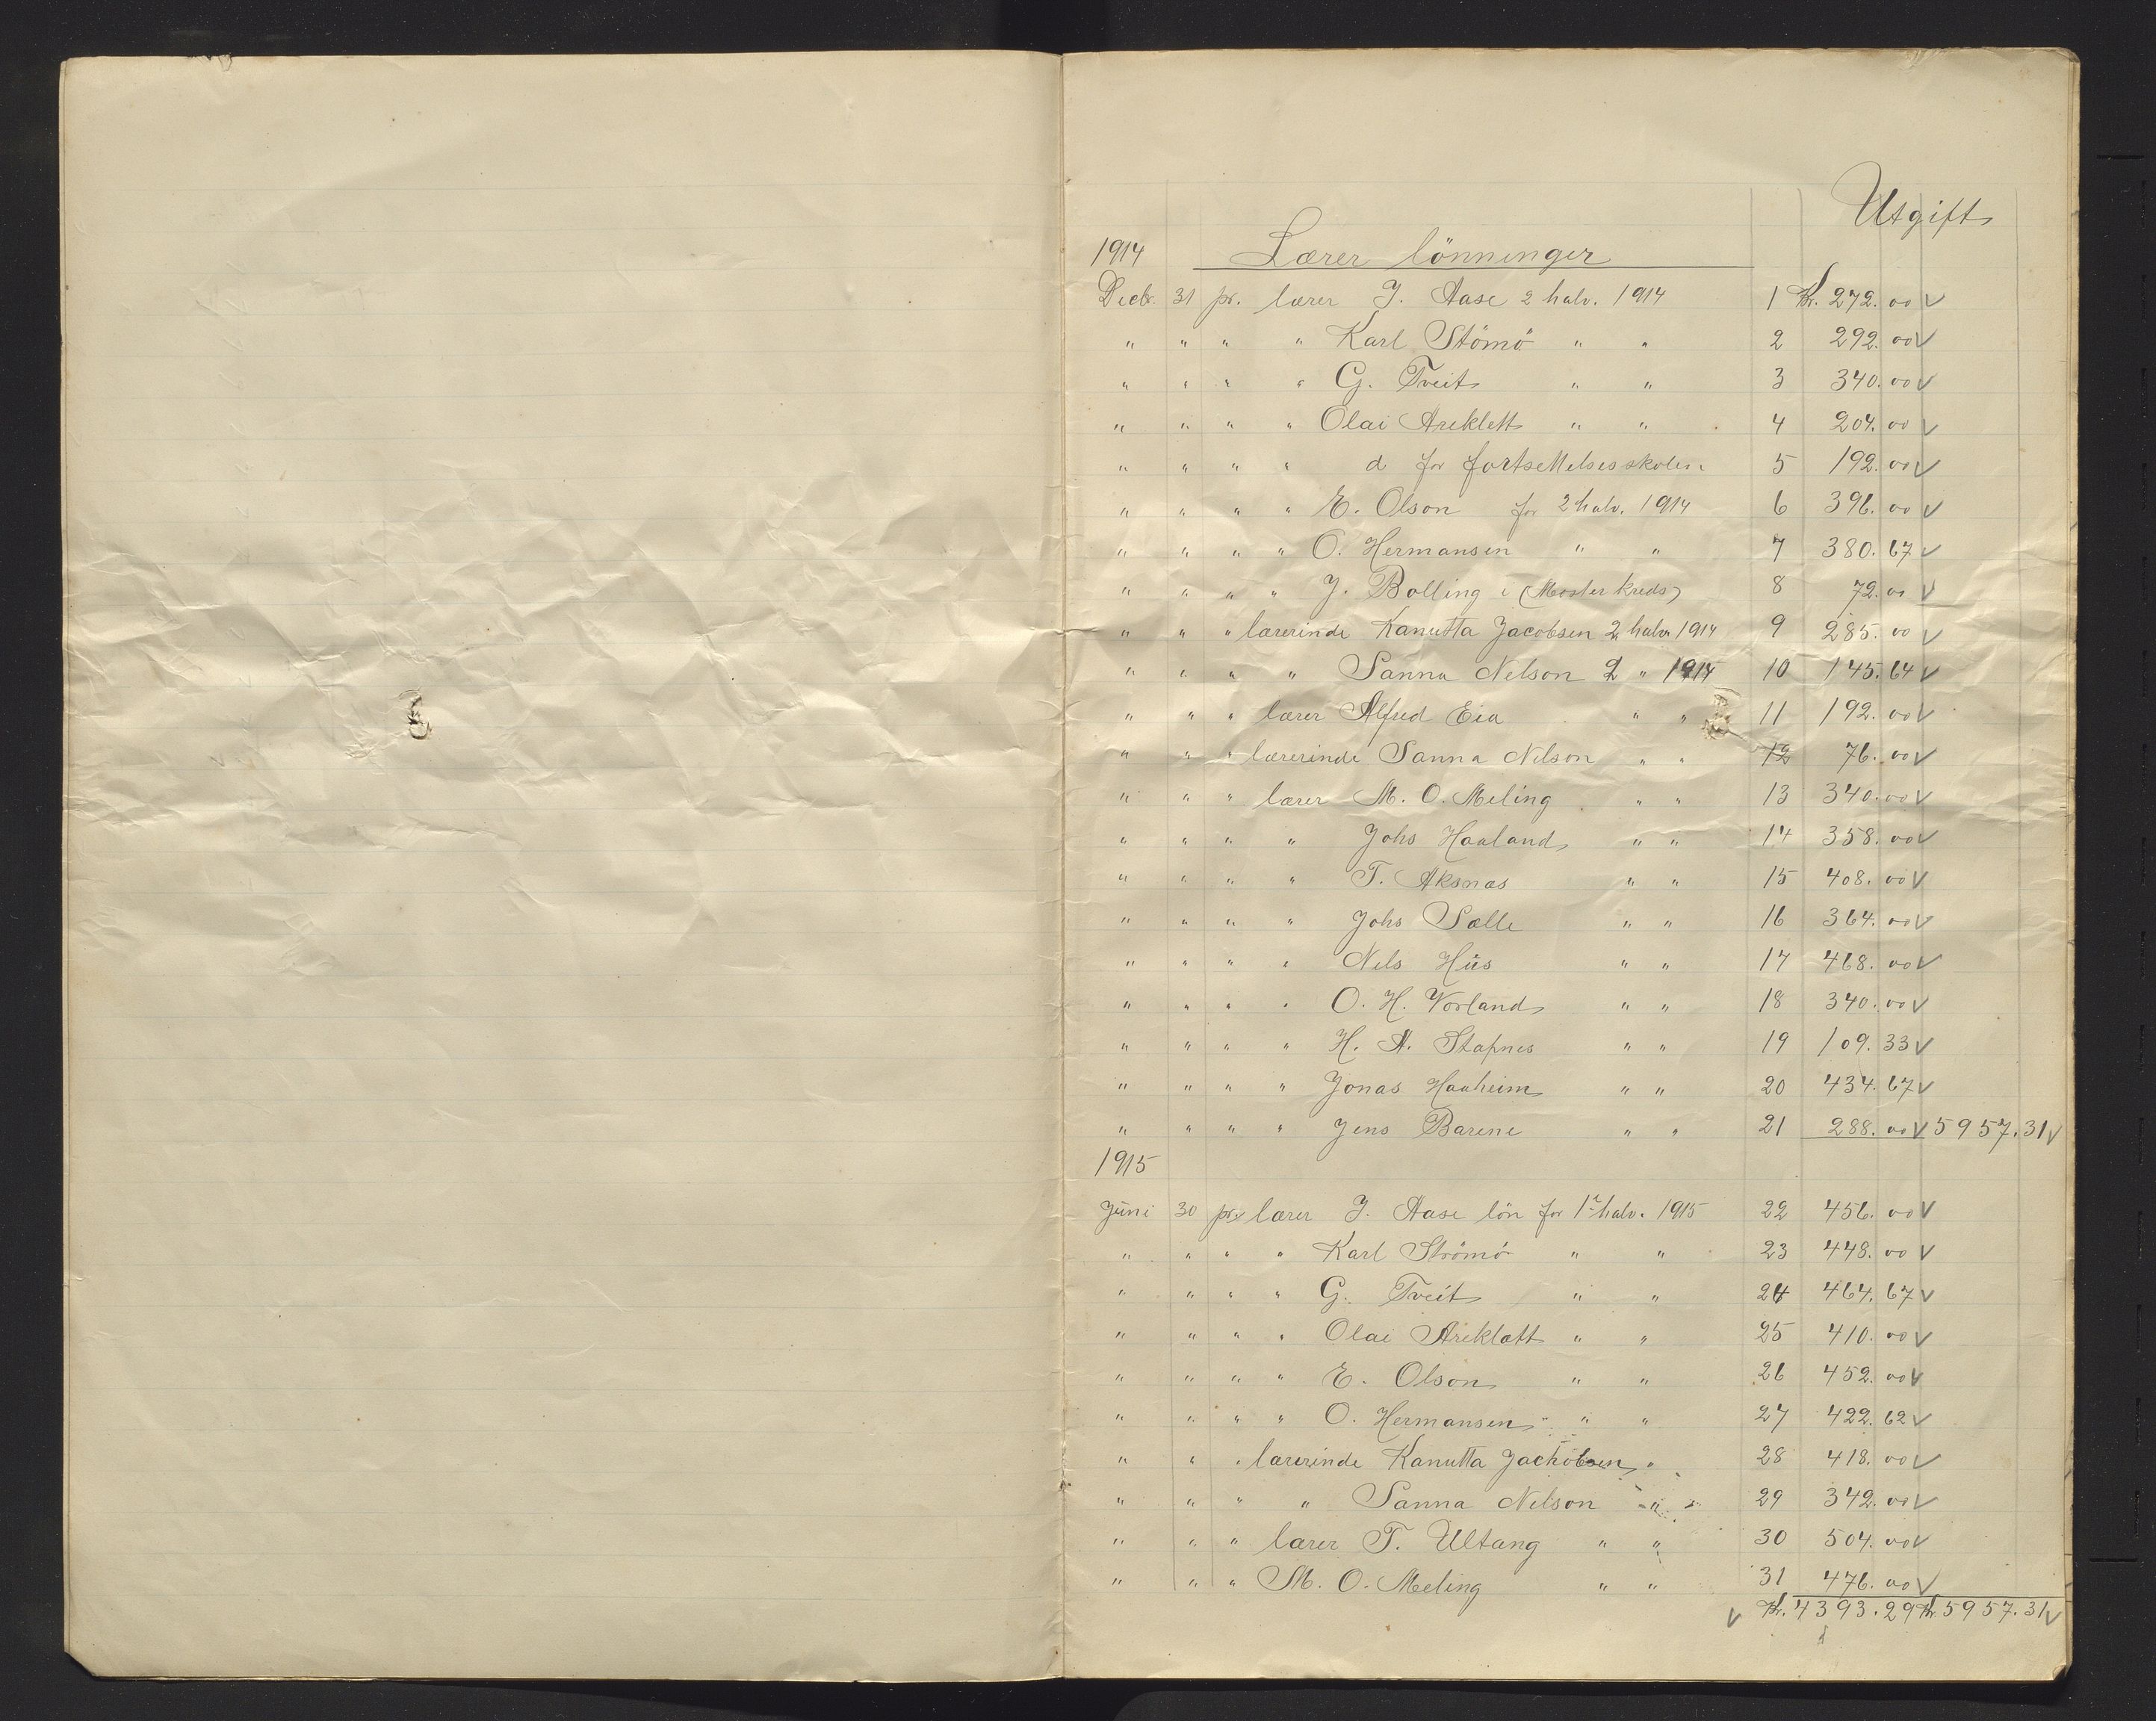 Utgift
1914 Lærer lönninger
Decbr. 31 pr. lærer J. Aase 2 halv. 1914 1 Kr. 272.00 √
" " " " Karl Stömö " " 2 292.00 √
" " " " G. Tveit " " 3 340.00 √
" " " " Olai Areklett " " 4 204.00 √
" " " " d for fortsettelsesskolen 5 192.00 √
" " " " E. Olson for 2 halv. 1914 6 396.00 √
" " " " O. Hermansen " " 7 380.67 √
" " " " J. Bolling i (Moster kreds) 8 72.00 √
" " " lærerinde Kanutta Jacobsen 2 halv 1914 9 285.00 √
" " " " Sanna Nelson 2 " 1914 10 145.64 √
" " " lærer Alfred Eia " " 11 192.00 √
" " " lærerinde Sanna Nilson " " 12 76.00 √
" " " lærer M. O. Meling " " 13 340.00 √
" " " " Johs Haaland " " 14 358.00 √
" " " " T. Aksnæs " " 15 408.00 √
" " " " Johs Sælle " " 16 364.00 √
" " " " Nels Hüs " " 17 468.00 √
" " " " O. H. Vorland " " 18 340.00 √
" " " " H. A. Stapnes " " 19 109.33 √
" " " " Jonas Haaheim " " 20 434.67 √
" " " " Jens Barene " " 21 288.00 √ 5957.31 √
1915
Juni 30 pr. lærer J. Aase lön for 1ste halv. 1915 22 456.00 √
" " " " Karl Strömö " " 23 448.00 √
" " " " G. Tveit " " 24 464.67 √
" " " " Olai Areklatt " " 25 410.00 √
" " " " E. Olson " " 26 452.00 √
" " " " O. Hermansen " " 27 422.62 √
" " " lærerinde Kanutta Jachobsen " 28 418.00 √
" " " " Sanna Nelson " " 29 342.00 √
" " " lærer T. Ultang " " 30 504.00 √
" " " M. O. Meling " " 31 476.00 √
√ Kr. 4393.29 Kr. 5957.31 √